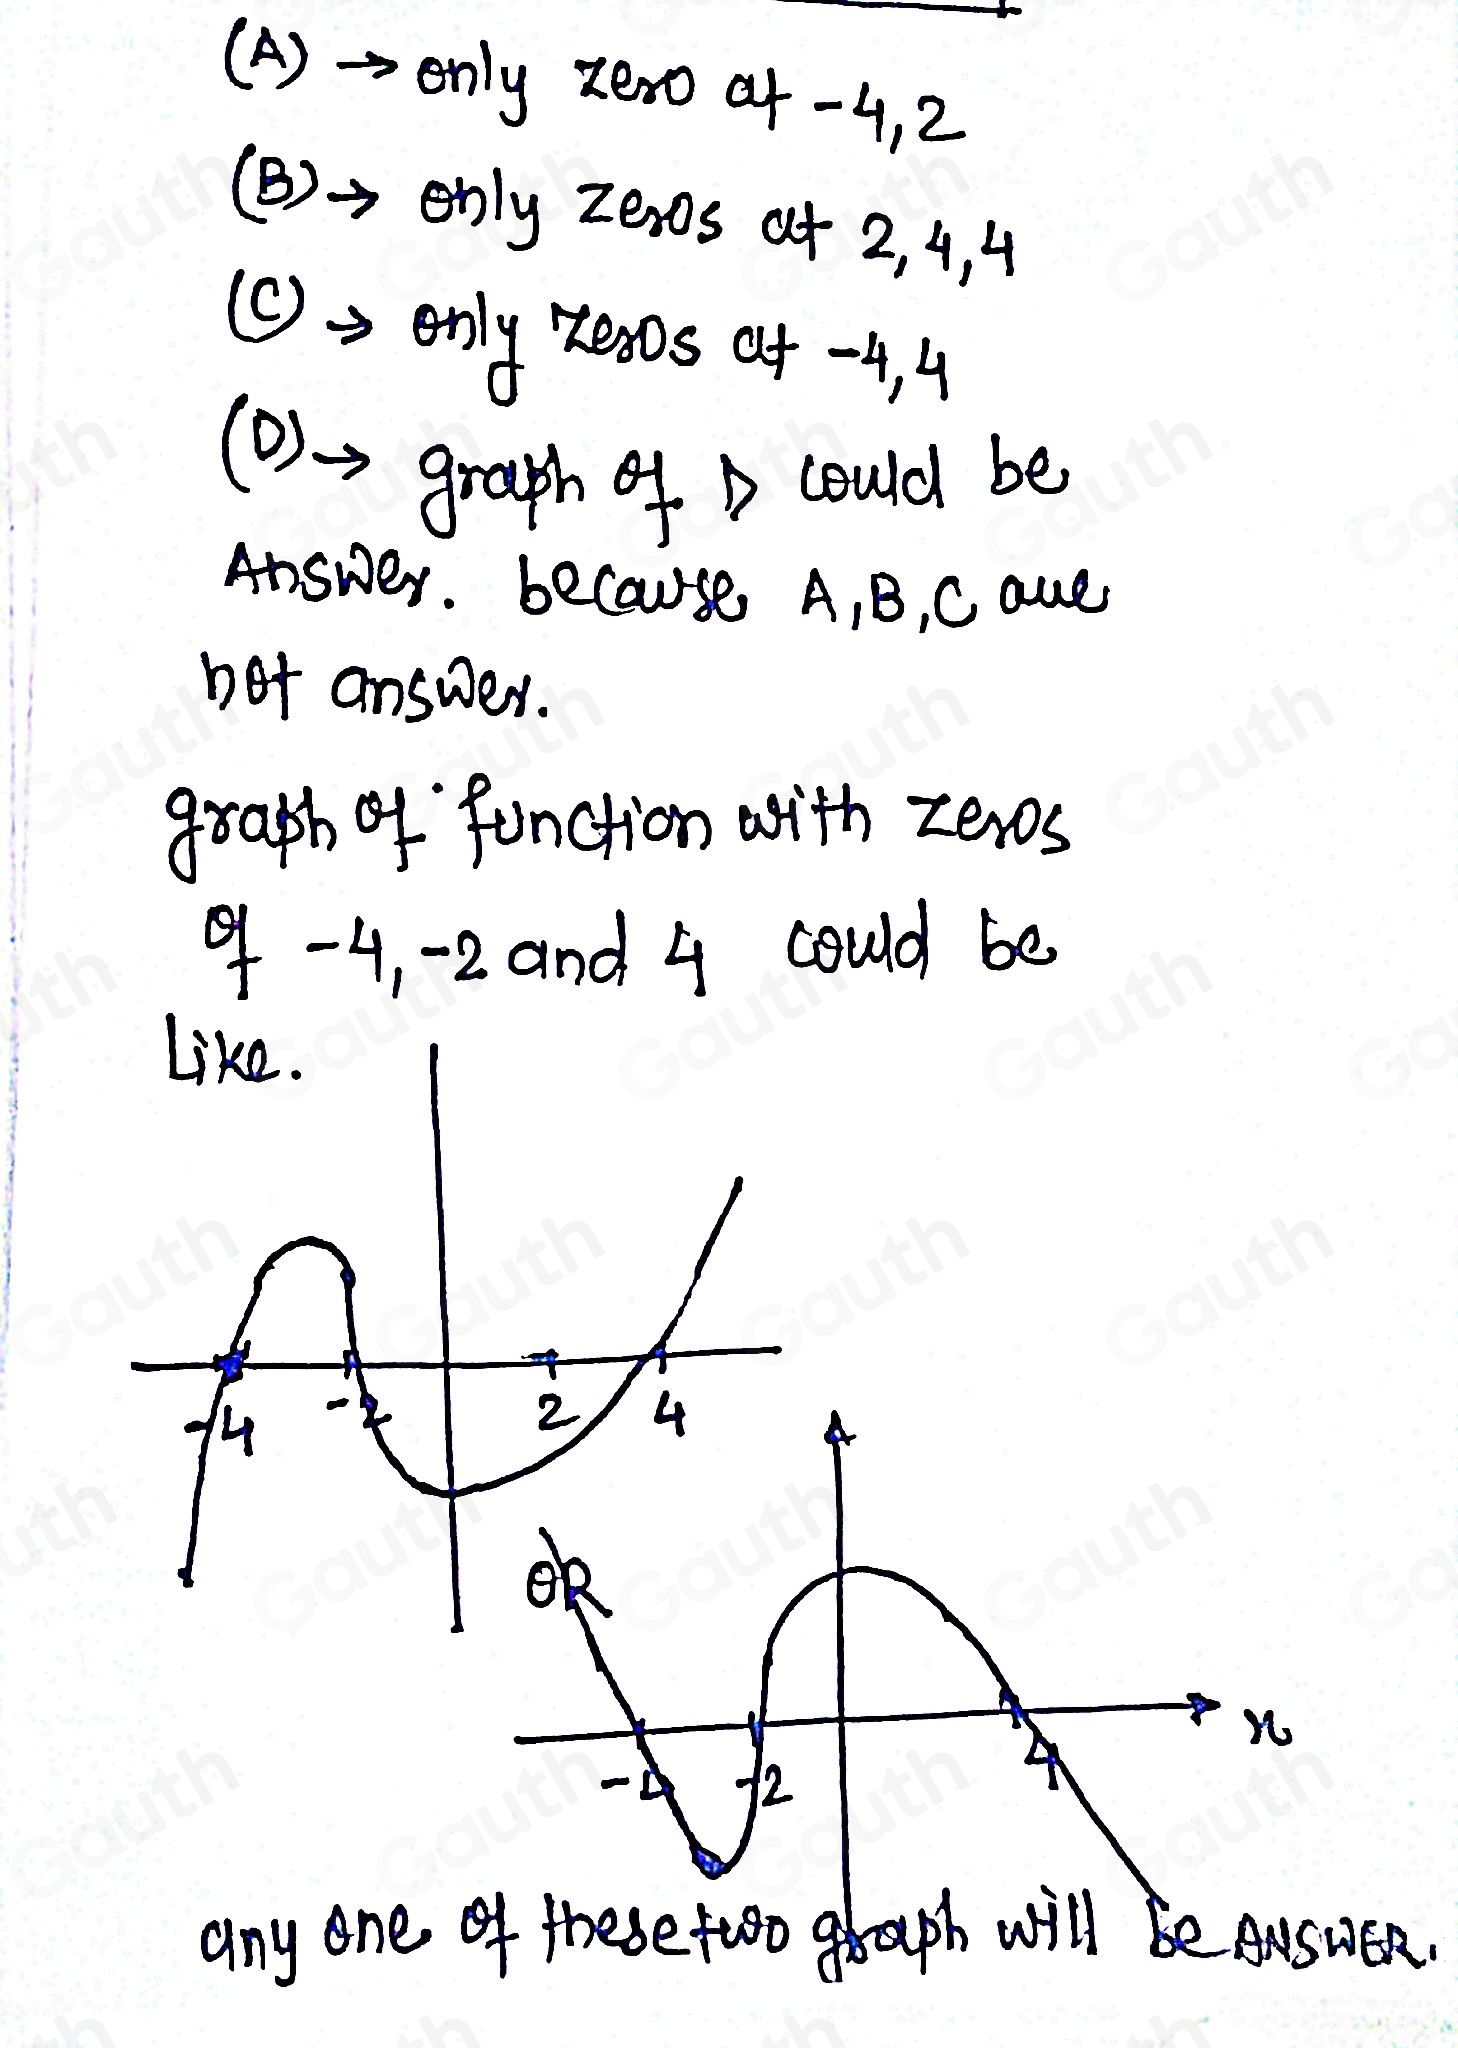 (A) → only zero at -4, 2
(B) → only zeros at 2, 4, 4
(C) → only zeros at -4, 4
(D) → graph of D could be
Answer. because A, B, C are
not answer.
graph of function with zeros
of -4, -2 and 4 could be
Like.
-4 -2 2 4
OR
-4 -2 4 x
any one of these two graph will be ANSWER.
Gauth